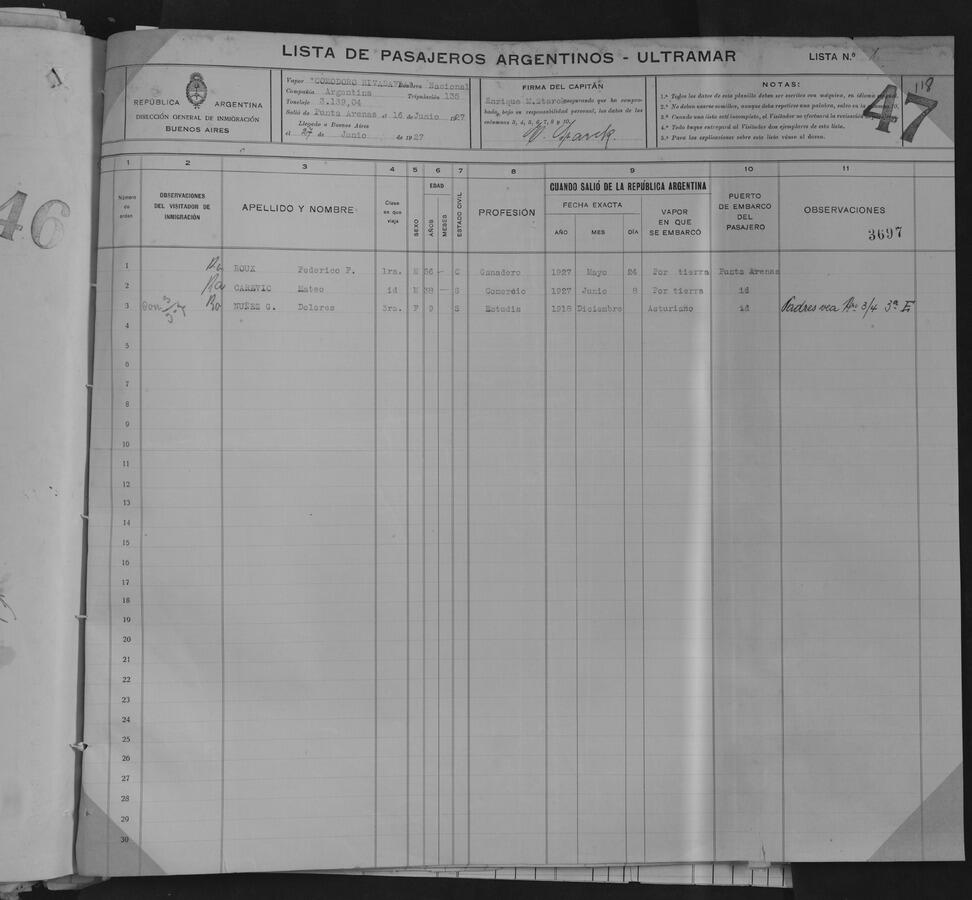 LISTA DE PASAJEROS ARGENTINOS - ULTRAMAR
LISTA N.º
REPÚBLICA ARGENTINA
DIRECCIÓN GENERAL DE INMIGRACIÓN
BUENOS AIRES
Vapor "COMODORO RIVADAVIA" Bandera Nacional
Compañía Argentina Tripulación 135
Tonelaje 3.139,04
Salió de Punta Arenas el 16 de Junio 1927
Llegado a Buenos Aires
el 27 de Junio de 1927
FIRMA DEL CAPITÁN
Enrique M. asegurando que ha compro-
bado, bajo su responsabilidad personal, los datos de las
columnas 3, 4, 5, 6, 7, 8 y 10.
NOTAS:
1.ª Todos los datos de esta planilla deben ser escritos con máquina, en idioma
2.ª No deben usarse comillas, aunque deba repetirse una palabra, salvo en la 10.
3.ª Cuando una lista esté incompleta, el Visitador no efectuará la revisación
4.ª Todo buque entregará al Visitador dos ejemplares de esta lista.
5.ª Para las explicaciones sobre esta lista véase al dorso.
118
47
46
1 2 3 4 5 6 7 8 9 10 11
Número de orden
OBSERVACIONES DEL VISITADOR DE INMIGRACIÓN
APELLIDO Y NOMBRE
Clase en que viaja
SEXO
EDAD
AÑOS
MESES
ESTADO CIVIL
PROFESIÓN
CUANDO SALIÓ DE LA REPÚBLICA ARGENTINA
FECHA EXACTA
AÑO MES DÍA
VAPOR EN QUE SE EMBARCÓ
PUERTO DE EMBARCO DEL PASAJERO
OBSERVACIONES
3697
1 ROUX Federico F. 1ra. M 56 — C Ganadero 1927 Mayo 24 Por tierra Punta Arenas
2 CAREVIC Mateo id M 38 — S Comercio 1927 Junio 8 Por tierra id
3 NUÑEZ G. Dolores 3ra. F 9 S Estudia 1918 Diciembre Asturiano id Padres vea Nro 3/4 3ª E
4
5
6
7
8
9
10
11
12
13
14
15
16
17
18
19
20
21
22
23
24
25
26
27
28
29
30